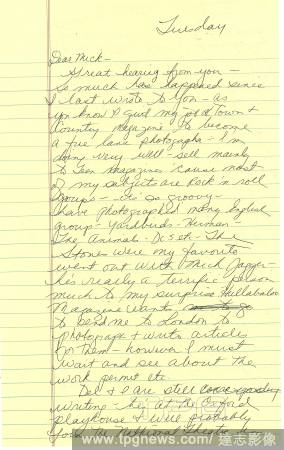 Tuesday
Dear Mick -
Great hearing from you -
So much has happened since
I last wrote to you - as
you know I quit my job at Town &
Country Magazine to become
a free lance photographer - I'm
doing very well - sell mainly
to Teen magazines 'cause most
of my subjects are Rock n roll
Groups - its so groovy -
I have photographed many English
groups - Yardbirds - Herman
The Animals - DC5 etc - The
Stones were my favorite
went out with Mick Jagger -
he's really a terrific person
much to my surprise Hullabaloo
Magazine wants
to send me to London to
photograph & write articles
for them - however I must
wait and see about the
work permit etc
Del & I are still
writing - he's at the Oxford
playhouse & will probably
join the National Theatre
www.tpgnews.com/達志影像